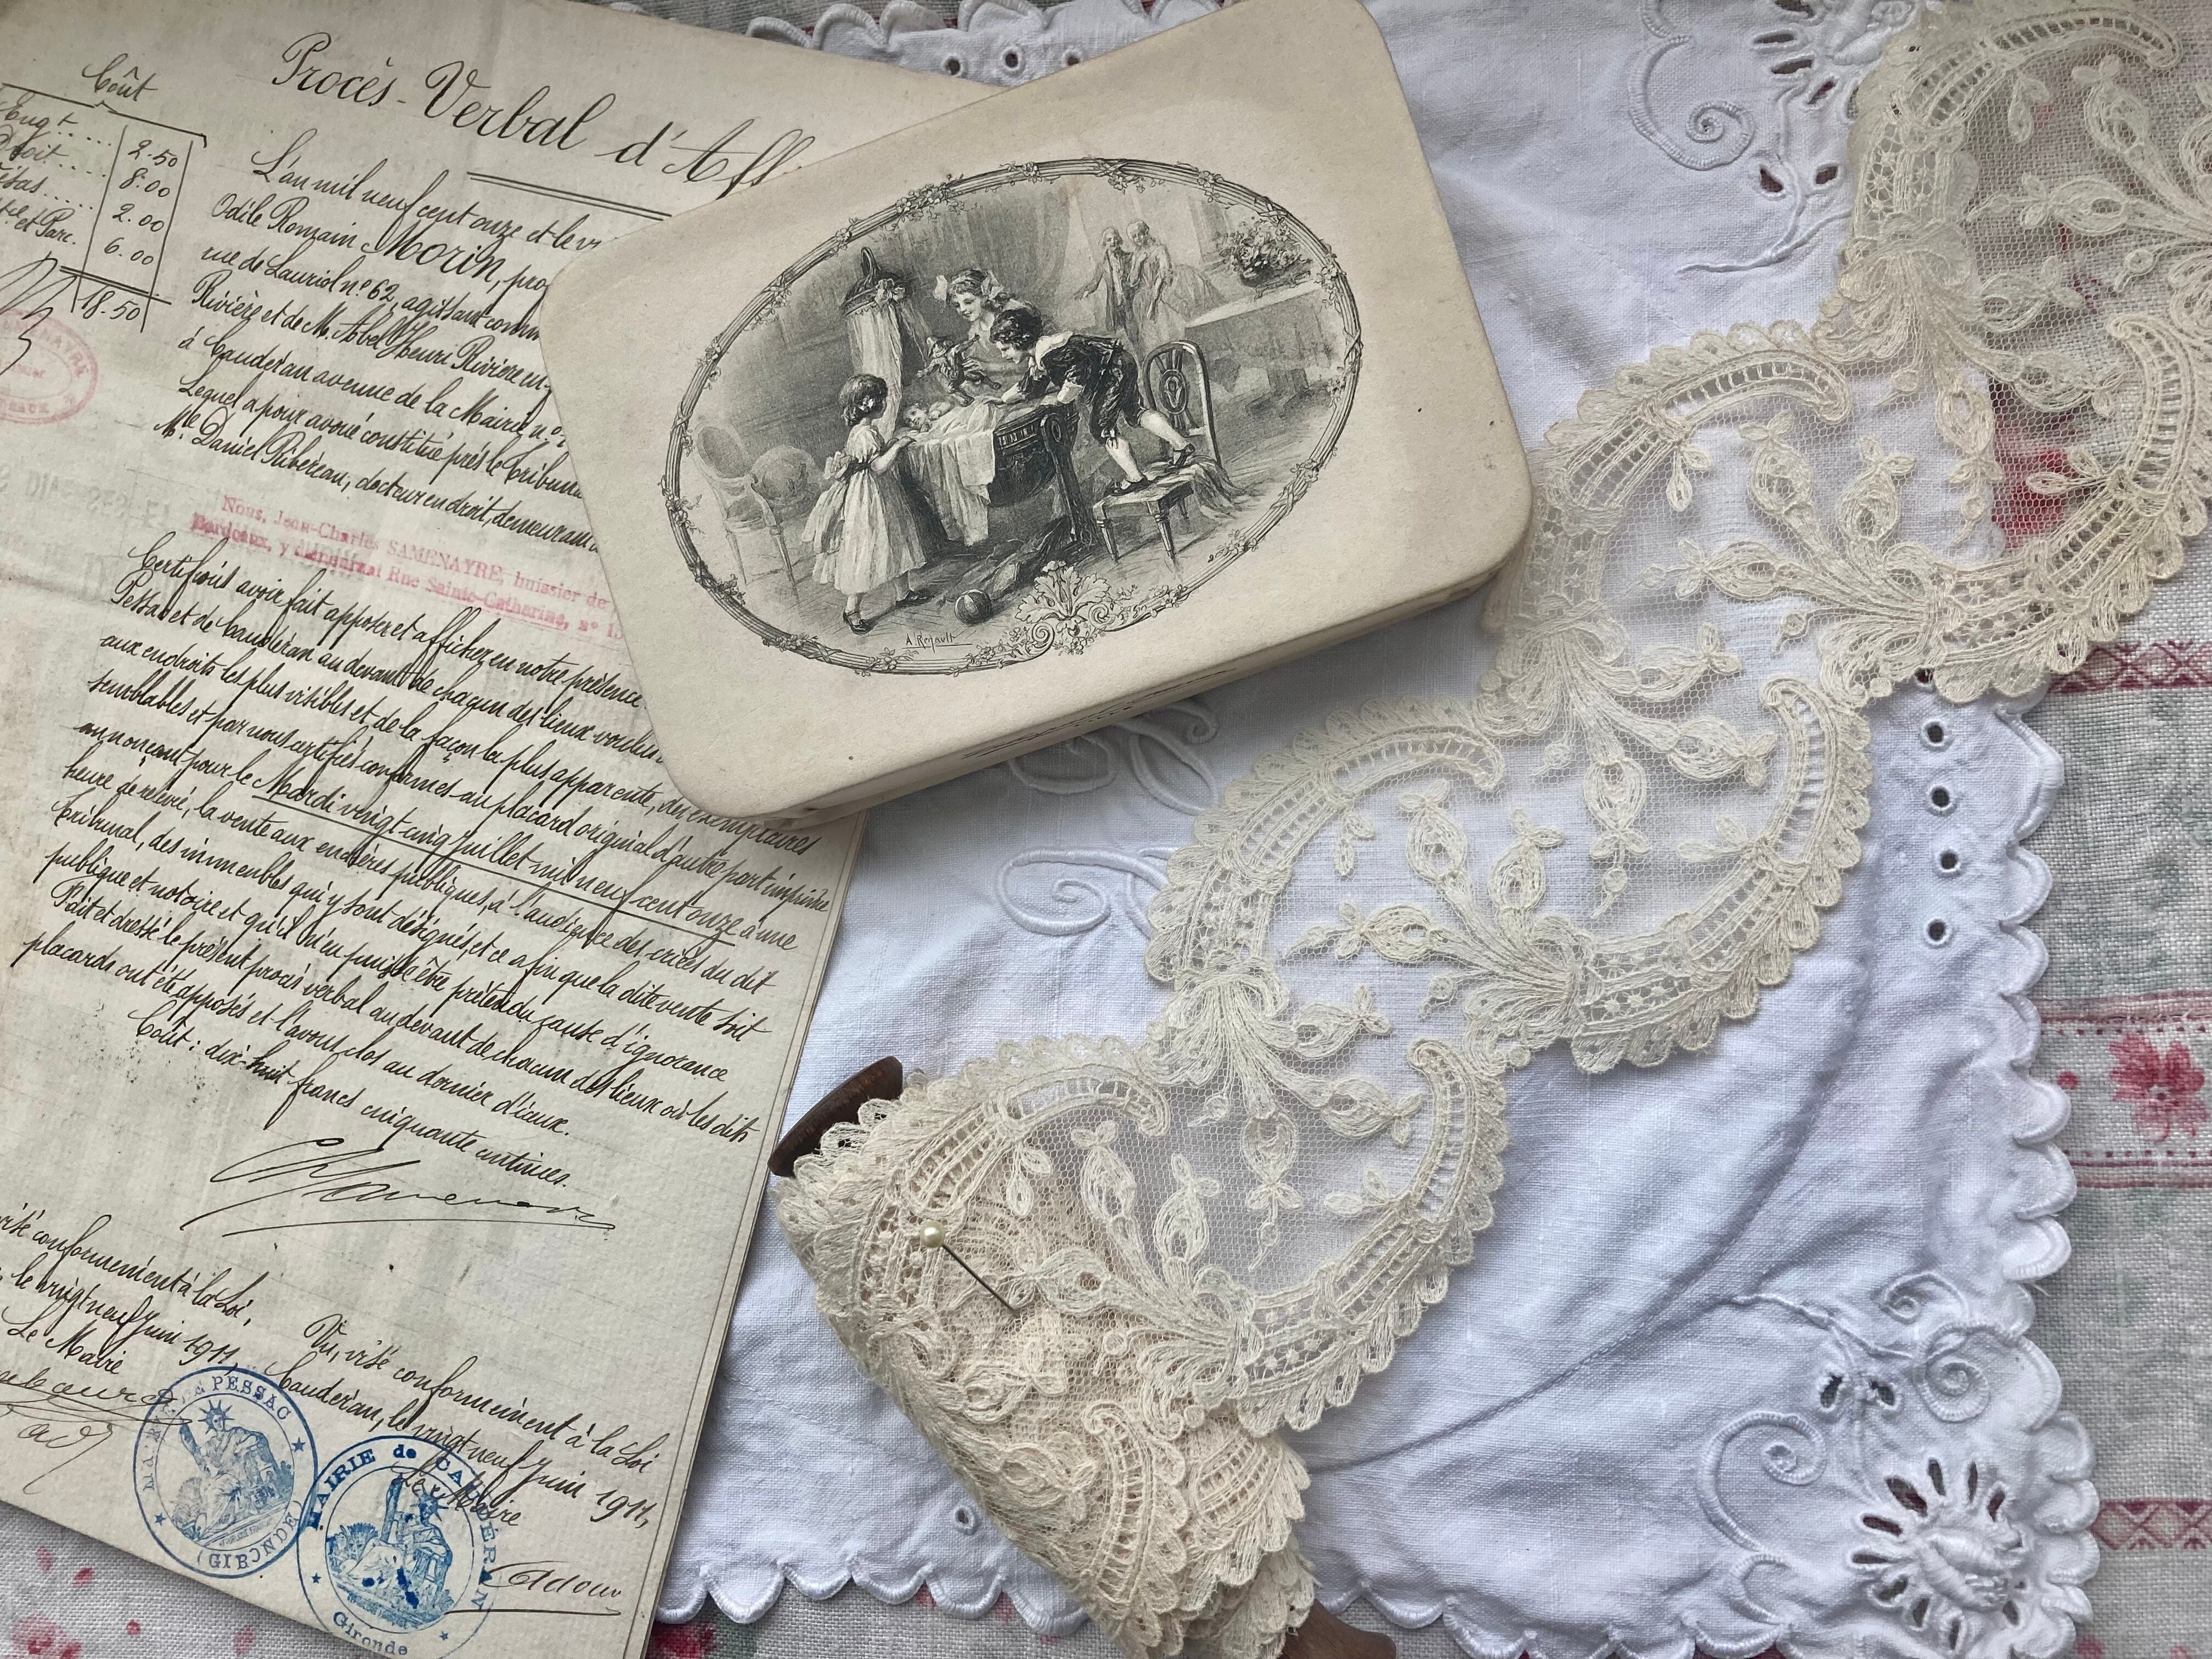 Procès-Verbal d'Aff
Coût
Eng.t .... 2.50
Droit .... 8.00
2.00
et Parc. 6.00
18.50
L'an mil neuf cent onze et le vi
Odile Romain Morin, pro
rue de Lauriol n° 62, agissant comm
Rivière et de M. Abel Henri Rivière en
à Caudéran avenue de la Mairie, n°
Lequel a pour avoué constitué près le Tribuna
Me Daniel Ribéreau, docteur en droit, demeurant
Nous, Jean-Charles SAMENAYRE, huissier de
Bordeaux, y demeurant Rue Sainte-Catherine, n° 1
Certifions avoir fait apposer et afficher en notre présence
Pessac et de Caudéran au devant de chacun des lieux voulus
aux endroits les plus visibles et de la façon la plus apparente, des exemplaires
semblables et par nous certifiés conformes au placard original d'autre part imprimé
annonçant pour le Mardi vingt-cinq juillet mil neuf cent onze à une
heure de relevé, la vente aux enchères publiques, à l'audience des criées du dit
Tribunal, des immeubles qui y sont désignés, et ce afin que la dite vente soit
publique et notoire et qu'il n'en puisse être prétendu cause d'ignorance
Fait et dressé le présent procès verbal au devant de chacun des lieux où les dits
placards ont été apposés et l'avons clos au dernier d'iceux.
Coût : dix-huit francs cinquante centimes.
visé conformément à la Loi,
le vingt neuf Juin 1911,
Le Maire
MAIRIE DE PESSAC
(GIRONDE)
Vu, visé conformément à la Loi
Caudéran, le vingt neuf Juin 1911,
Le Maire
MAIRIE de CAUDÉRAN
Gironde
A. Regault